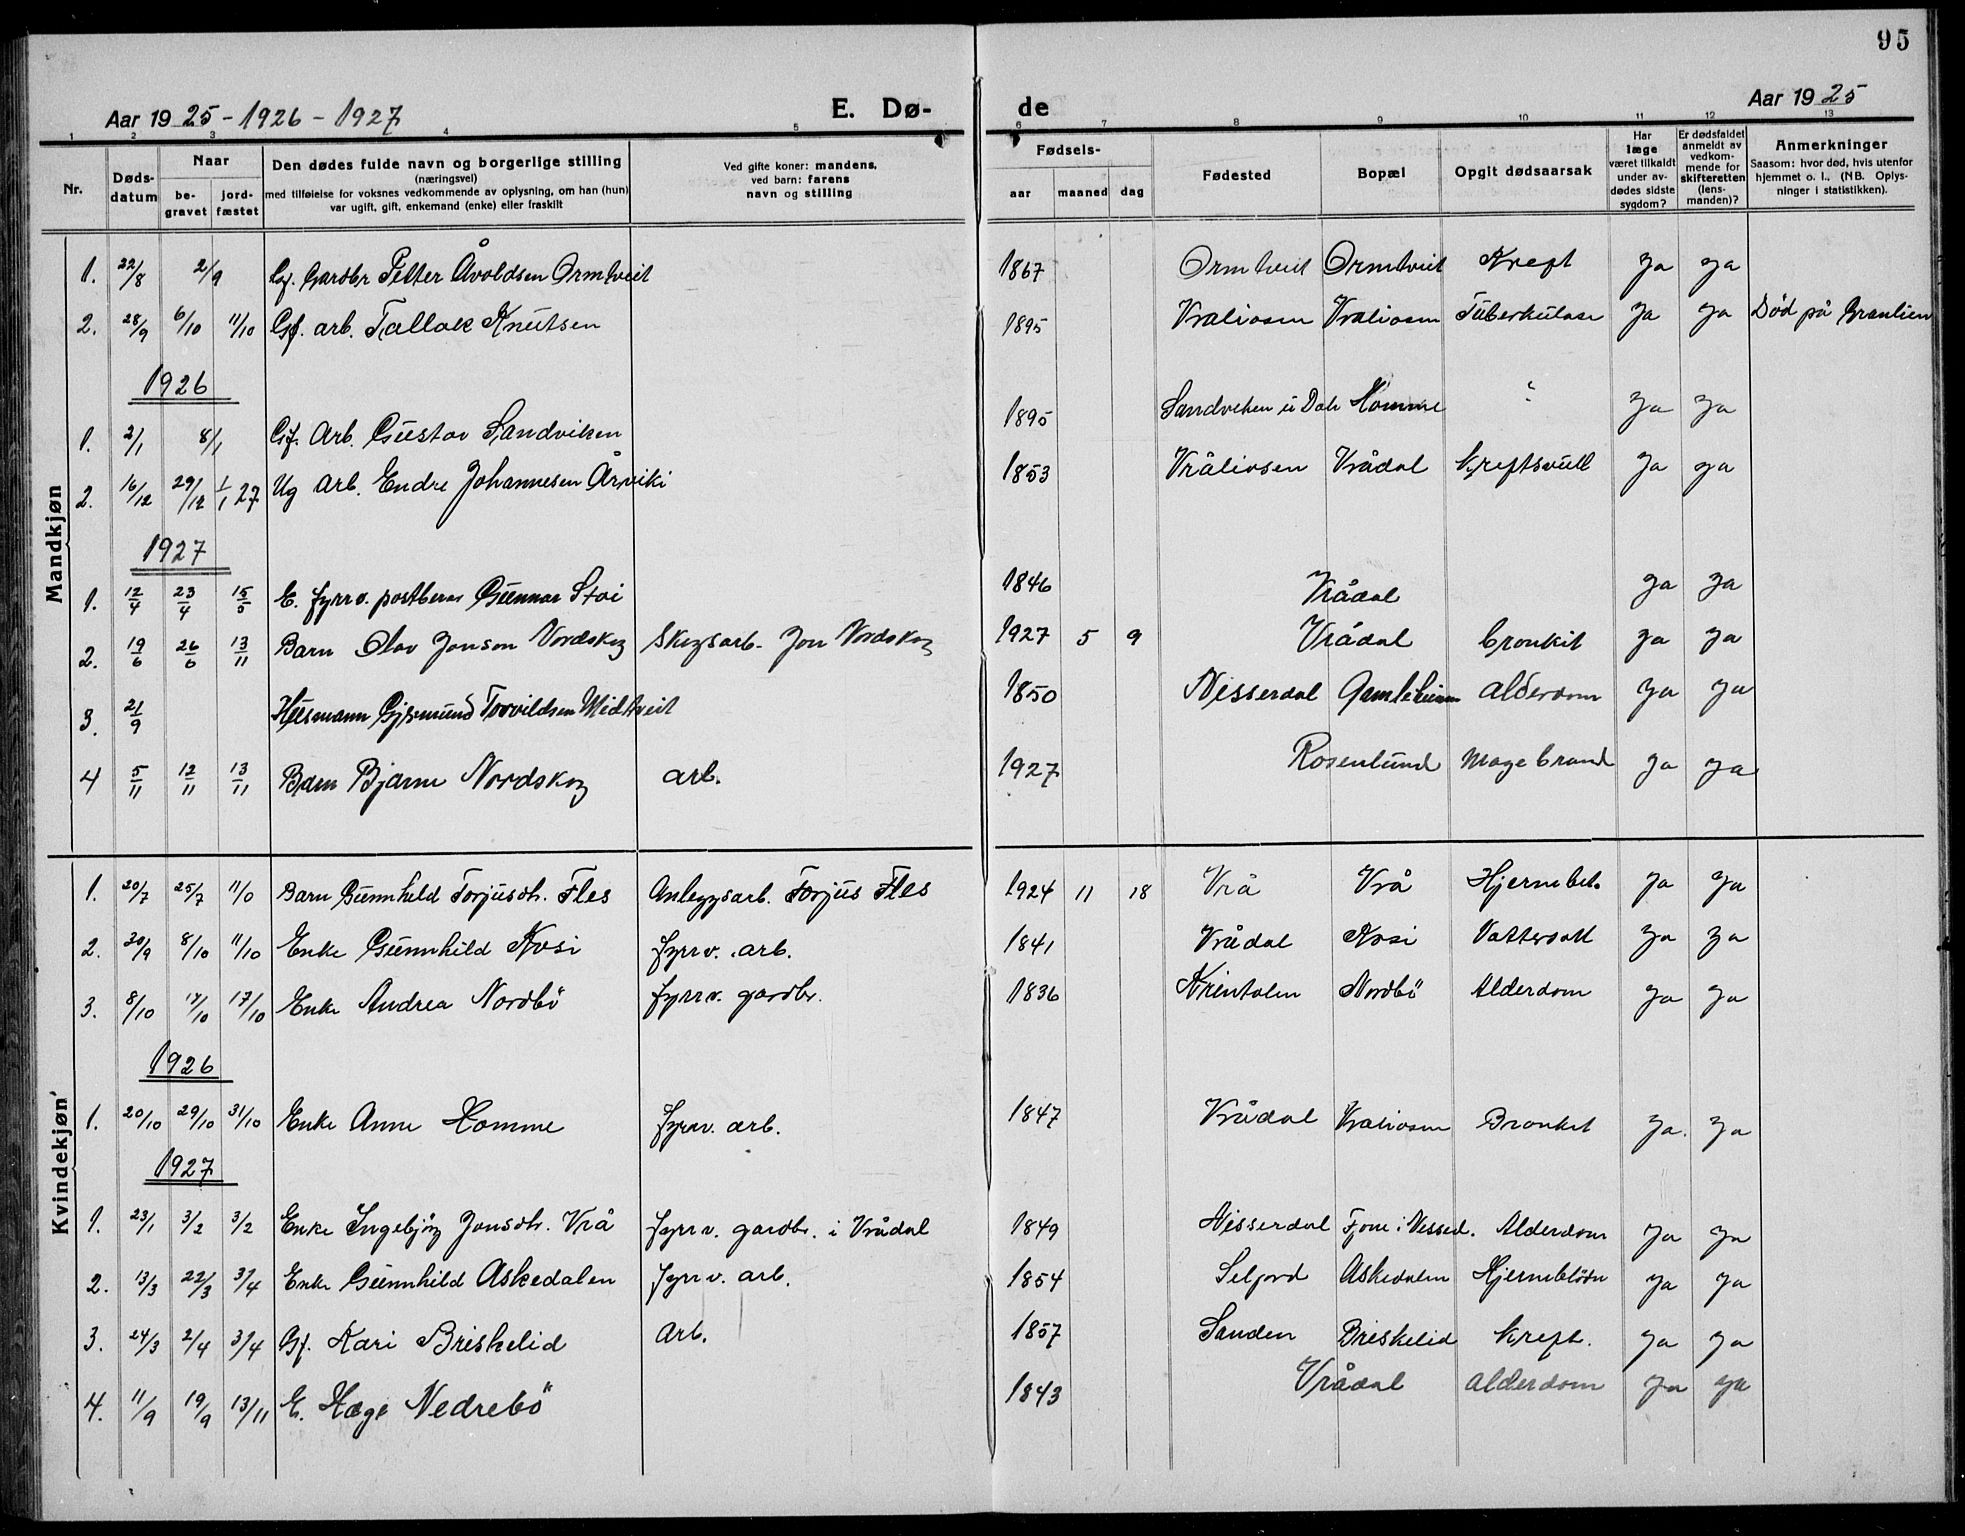 95
Aar 1925 - 1926 - 1927 E. Dø- de Aar 1925
1 2 3 4 5 6 7 8 9 10 11 12 13
Nr. Døds-datum Naar be-gravet jord-fæstet Den dødes fulde navn og borgerlige stilling (næringsvei) med tilføielse for voksnes vedkommende av oplysning, om han (hun) var ugift, gift, enkemand (enke) eller fraskilt Ved gifte koner: mandens, ved barn: farens navn og stilling Fødsels- aar maaned dag Fødested Bopæl Opgit dødsaarsak Har læge været tilkaldt under av-dødes sidste sygdom? Er dødsfaldet anmeldt av vedkom-mende for skifteretten (lens-manden)? Anmerkninger Saasom: hvor død, hvis utenfor hjemmet o. l., (NB. Oplys-ninger i statistikken).
Mandkjøn
1. 22/8 2/9 Gf. Gardbr Petter Åvoldsen Ormtveit 1867 Ormtveit Ormtveit Kreft Ja Ja
2. 28/9 6/10 11/10 Gf. arb. Tallak Knutsen 1895 Vraliosen Vraliosen Tuberkulose Ja Ja Død på Grenlien
1926
1. 2/1 8/1 Gf. Arb. Gustav Sandviken 1895 Sandviken i Dal Homme " Ja Ja
2. 16/12 29/12 1/1 27 Ug arb. Endre Johannesen Årviki 1853 Vråliosen Vrådal Kreftsvull Ja Ja
1927
1. 12/4 23/4 15/5 E. fyrrv. postberer Gunnar Stoi 1846 Vrådal Ja Ja
2. 19/6 26/6 13/11 Barn Olav Jonson Nordskog Skogsarb. Jon Nordskog 1927 5 9 Vrådal bronkit Ja Ja
3. 21/9 Husmann Gjermund Torvildsen Midtveit 1850 Nisserdal Gamleheim Alderdom Ja Ja
4 5/11 12/11 13/11 Barn Bjarne Nordskog arb. 1927 Rosenlund Mage brand Ja Ja
Kvindekjøn
1. 20/7 25/7 11/0 Barn Gunnhild Torjusdtr. Fles Anleggsarb. Torjus Fles 1924 11 18 Vrå Vrå Hjernebet. Ja Ja
2. 30/9 8/10 11/10 Enke Gunnhild Kosi fyrrv. arb. 1841 Vrådal Kosi Vattersott Ja Ja
3. 8/10 17/10 17/10 Enke Andrea Nordbö fyrrv. gardbr. 1836 Nordbö Alderdom Ja Ja
1926
1. 20/10 29/10 31/10 Enke Anne Homme fyrrv. arb. 1847 Vrådal Vraliosen Bronkit Ja. Ja
1927
1. 23/1 3/2 3/2 Enke Ingebjög Jonsdtr. Vrå fyrrv. gardbr. i Vrådal 1849 Nisserdal Fjone i Nissed. Alderdom Ja Ja
2. 13/3 22/3 3/4 Enke Gunnhild Askedalen fyrrv. arb. 1854 Seljord Askedalen Hjerneblödn Ja Ja
3. 24/3 2/4 3/4 Gf. Kari Briskelid Arb. 1857 Sanden Briskelid Kreft. Ja Ja
4. 11/9 19/9 13/11 E. Hæge Nedrebö 1843 Vrådal Alderdom Ja Ja